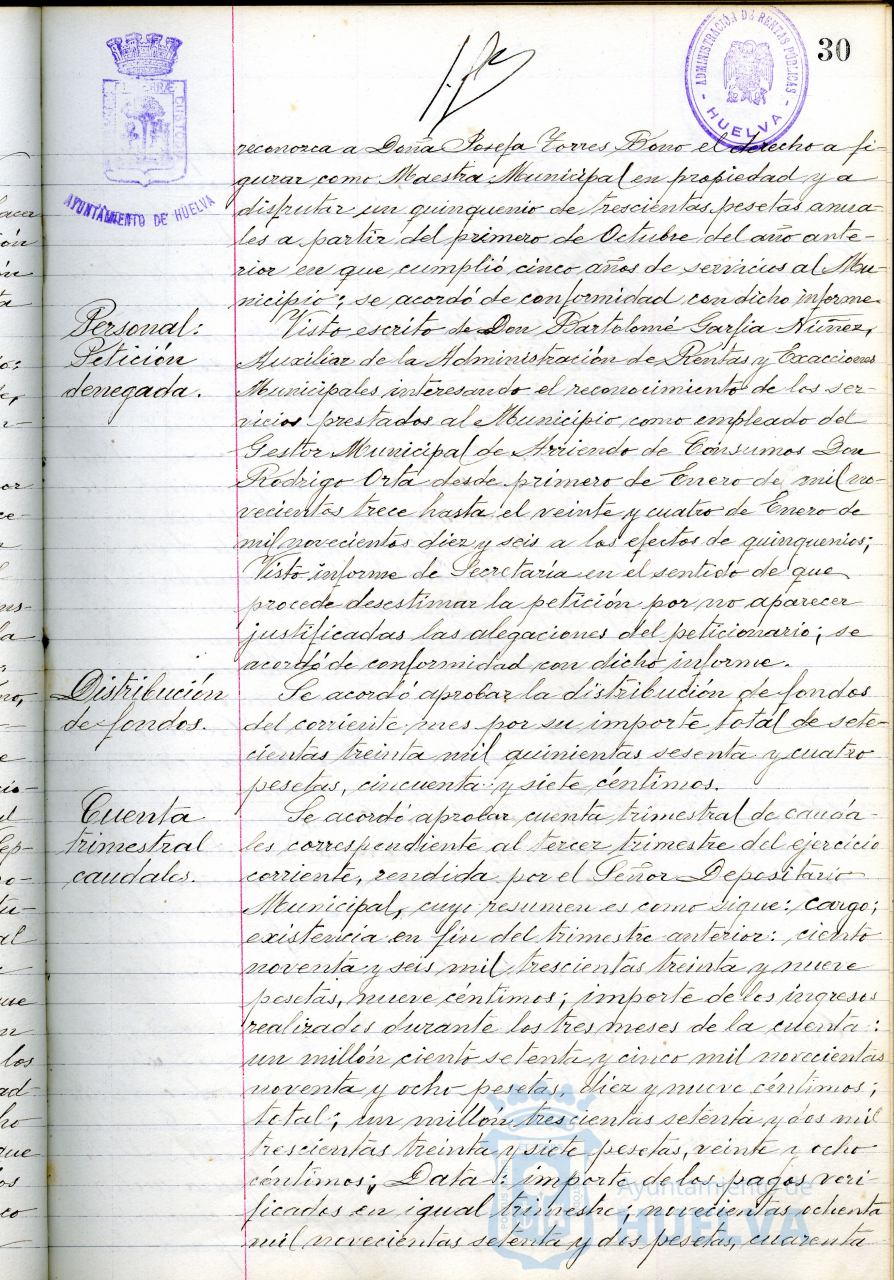 30
ADMINISTRACIÓN DE RENTAS PÚBLICAS
- HUELVA -
AYUNTAMIENTO DE HUELVA
reconozca a Doña Josefa Torres Bono el derecho a fi-
gurar como Maestra Municipal en propiedad y a
disfrutar un quinquenio de trescientas pesetas anua-
les a partir del primero de Octubre del año ante-
rior en que cumplió cinco años de servicios al Mu-
nicipio; se acordó de conformidad con dicho informe.
Personal:
Petición
denegada.
Visto escrito de Don Bartolomé Garfia Núñez,
Auxiliar de la Administración de Rentas y Exacciones
Municipales interesando el reconocimiento de los ser-
vicios prestados al Municipio como empleado del
Gesttor Municipal de Arriendo de Consumos Don
Rodrigo Orta desde primero de Enero de mil no-
vecientos trece hasta el veinte y cuatro de Enero de
mil novecientos diez y seis a los efectos de quinquenios;
Visto informe de Secretaría en el sentido de que
procede desestimar la petición por no aparecer
justificadas las alegaciones del peticionario; se
acordó de conformidad con dicho informe.
Distribución
de fondos.
Se acordó aprobar la distribución de fondos
del corriente mes por su importe total de sete-
cientas treinta mil quinientas sesenta y cuatro
pesetas, cincuenta y siete céntimos.
Cuenta
trimestral
caudales.
Se acordó aprobar cuenta trimestral de cauda-
les correspondiente al tercer trimestre del ejercicio
corriente, rendida por el Señor Depositario
Municipal, cuyo resumen es como sigue: cargo;
existencia en fin del trimestre anterior: ciento
noventa y seis mil trescientas treinta y nueve
pesetas, nueve céntimos; importe de los ingresos
realizados durante los tres meses de la cuenta:
un millón ciento setenta y cinco mil novecientas
noventa y ocho pesetas, diez y nueve céntimos;
total; un millón trescientas setenta y dos mil
trescientas treinta y siete pesetas, veinte y ocho
céntimos; Data: importe de los pagos veri-
ficados en igual trimestre; novecientas ochenta
mil novecientas setenta y dos pesetas, cuarenta
Ayuntamiento de
HUELVA